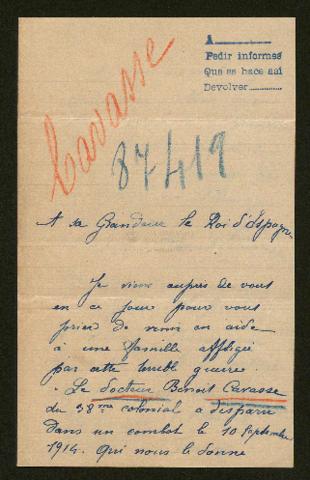 Cavasse
A
Pedir informes
Que se hace así
Devolver
87419
A sa Grandeur le Roi d'Espagne
Je viens auprès de vous
en ce jour pour vous
prier de venir en aide
à une famille affligée
par cette terrible guerre.
Le docteur Benoit Cavasse
du 38me colonial a disparu
dans un combat le 10 Septembre
1914. Qui nous le donne